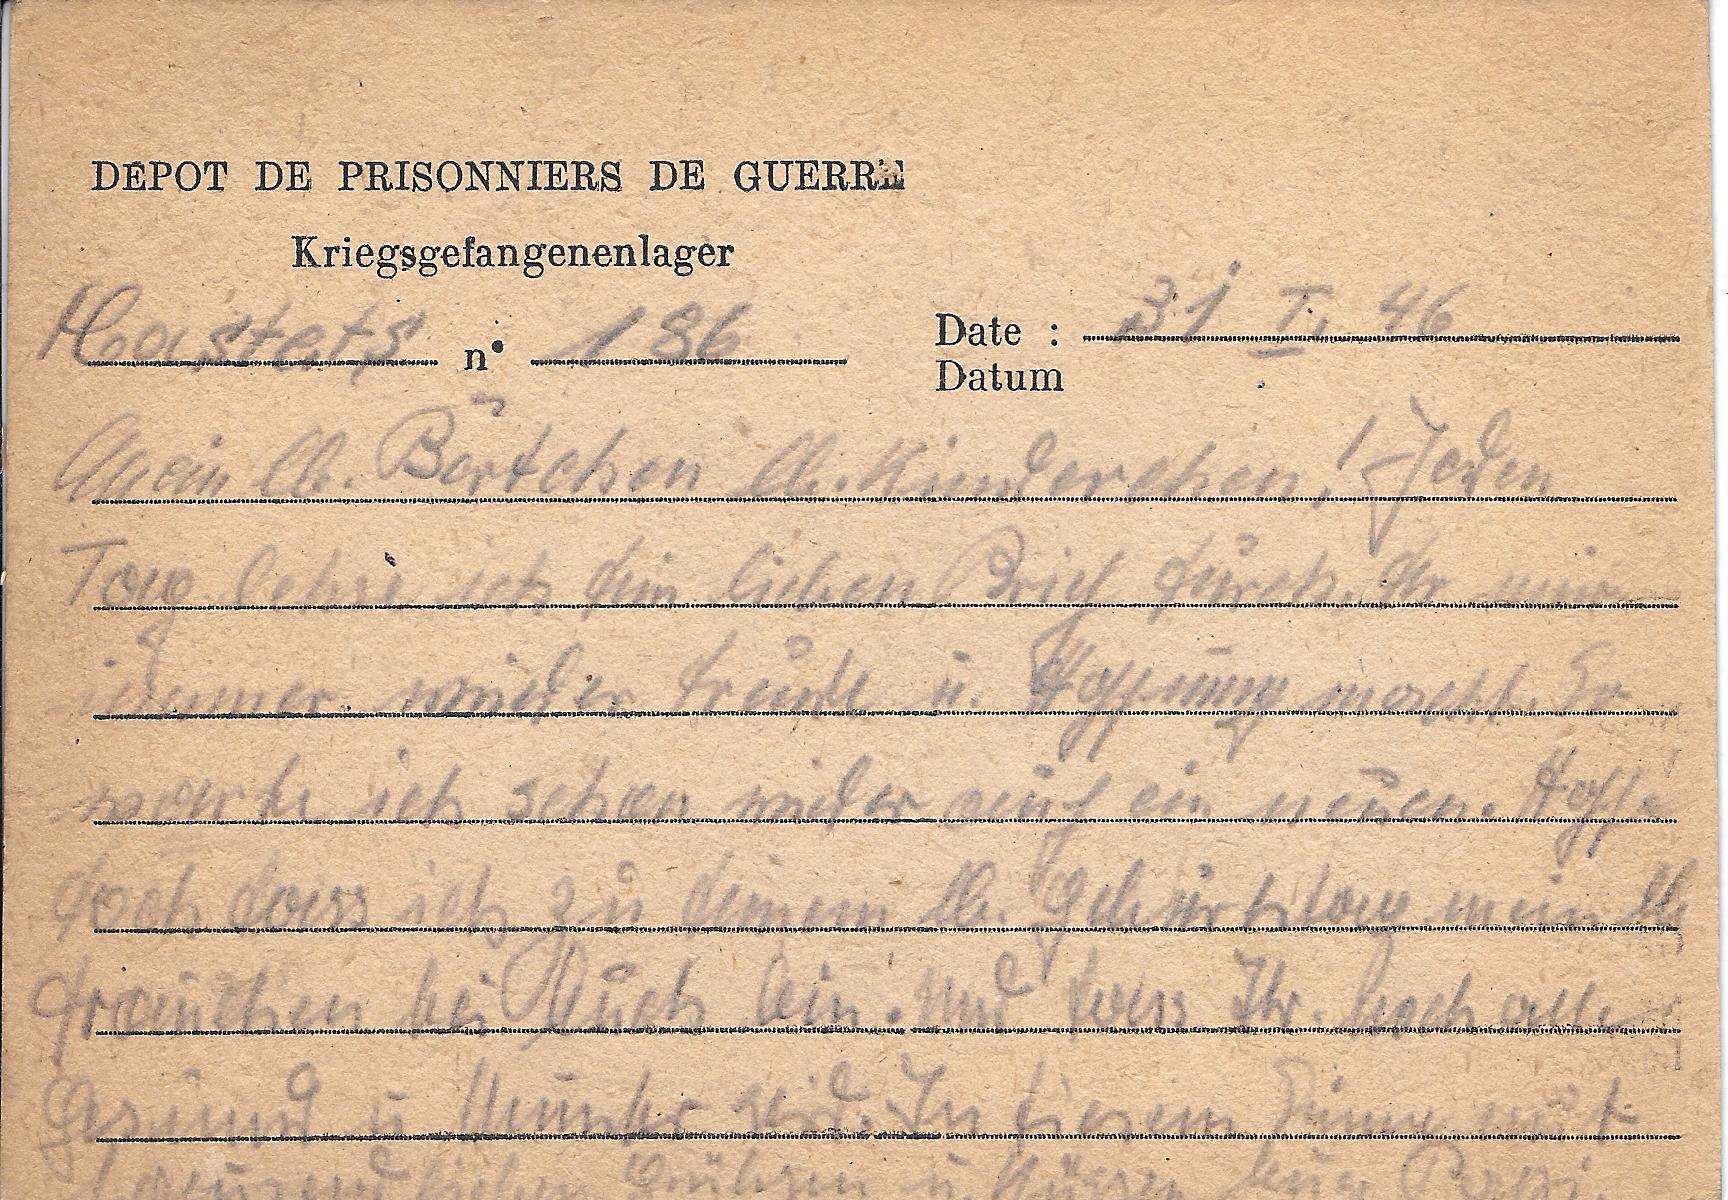 DÉPOT DE PRISONNIERS DE GUERRE
Kriegsgefangenenlager
n° 186 Date : 31 I. 46
Datum
Mein lb. Bärtchen lb. Kinderchen! Jeden
Tag lehse ich dein lieben Brief durch. der mir
immer wieder Freude u. Hoffnung macht. So
warte ich schon wieder auf ein neuen. Hoffe
doch dass ich zu deinem lb. Geburtstag mein lb
Frauchen bei Euch bin. Und dass Ihr. noch alle
Gesund u Munter seid. In diesem Sinne mit
tausendlichen Grühsen u. Küssen Euer Papi